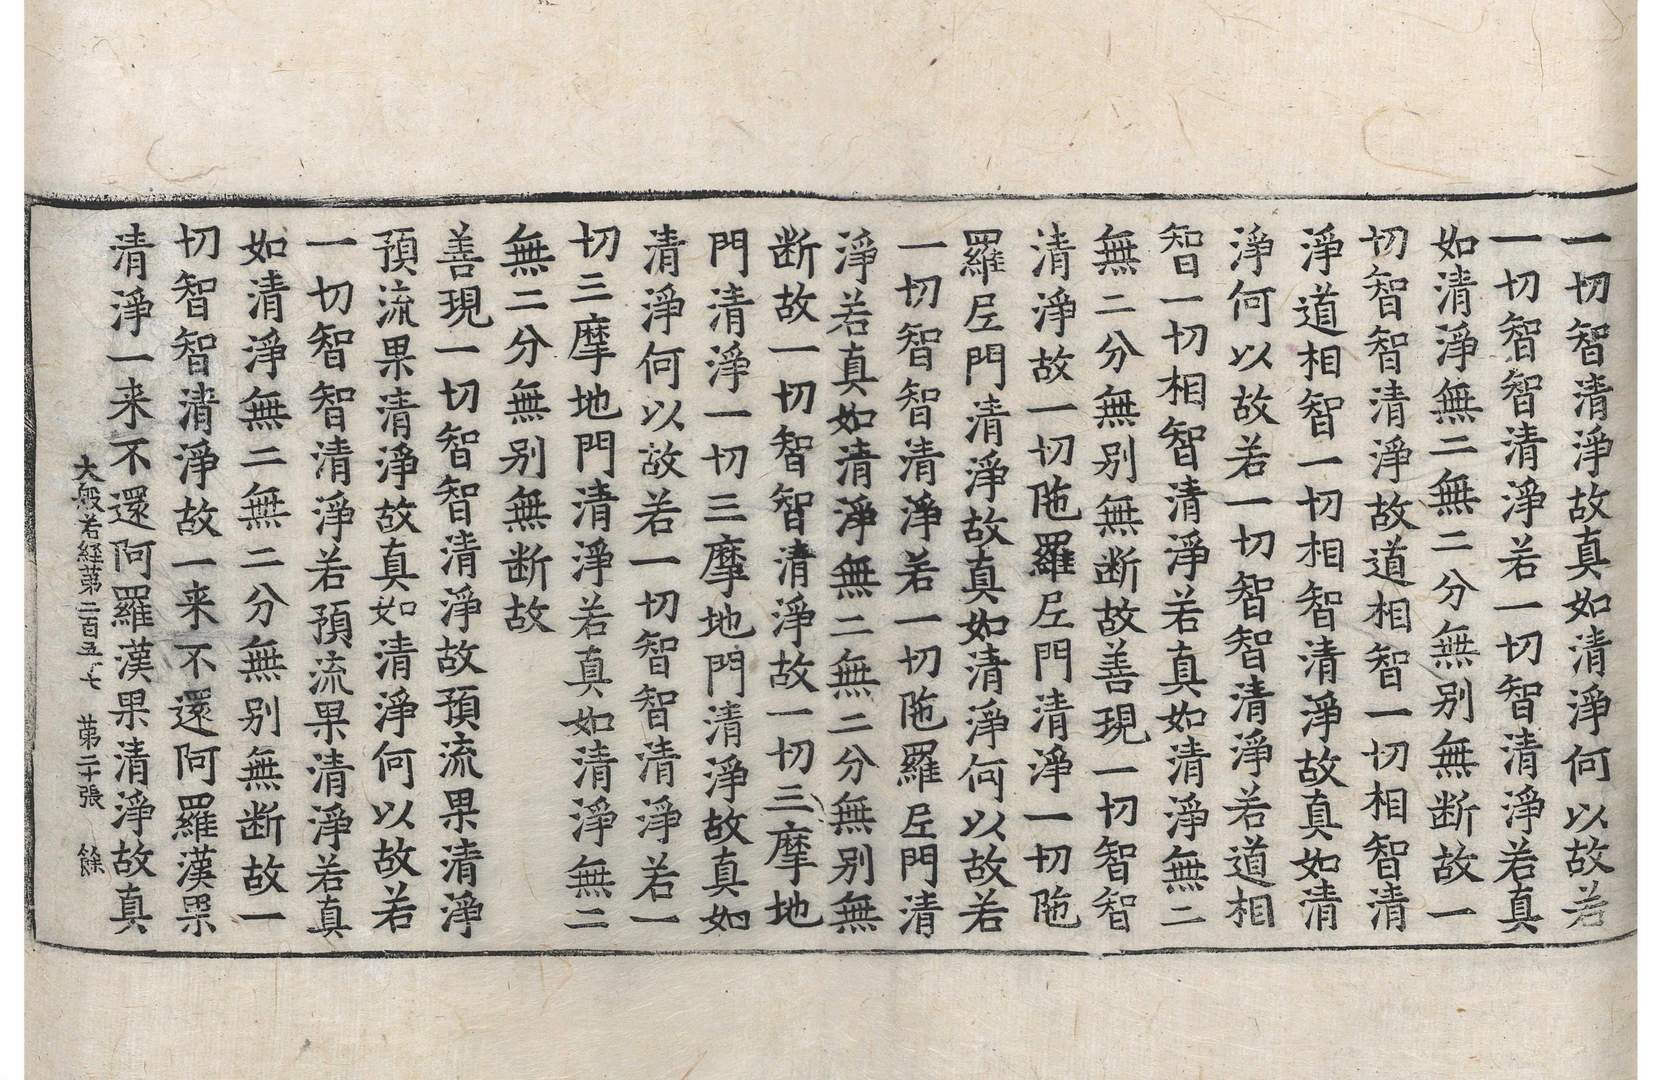 一切智清淨故真如清淨何以故若
一切智智清淨若一切智清淨若真
如清淨無二無二分無别無断故一
切智智清淨故道相智一切相智清
淨道相智一切相智清淨故真如清
淨何以故若一切智智清淨若道相
智一切相智清淨若真如清淨無二
無二分無别無断故善現一切智智
清淨故一切陁羅尼門清淨一切陁
羅尼門清淨故真如清淨何以故若
一切智智清淨若一切陁羅尼門清
淨若真如清淨無二無二分無别無
断故一切智智清淨故一切三摩地
門清淨一切三摩地門清淨故真如
清淨何以故若一切智智清淨若一
切三摩地門清淨若真如清淨無二
無二分無别無断故
善現一切智智清淨故預流果清淨
預流果清淨故真如清淨何以故若
一切智智清淨若預流果清淨若真
如清淨無二無二分無别無断故一
切智智清淨故一来不還阿羅漢果
清淨一来不還阿羅漢果清淨故真
大般若經苐二百五十七 苐二十張 餘